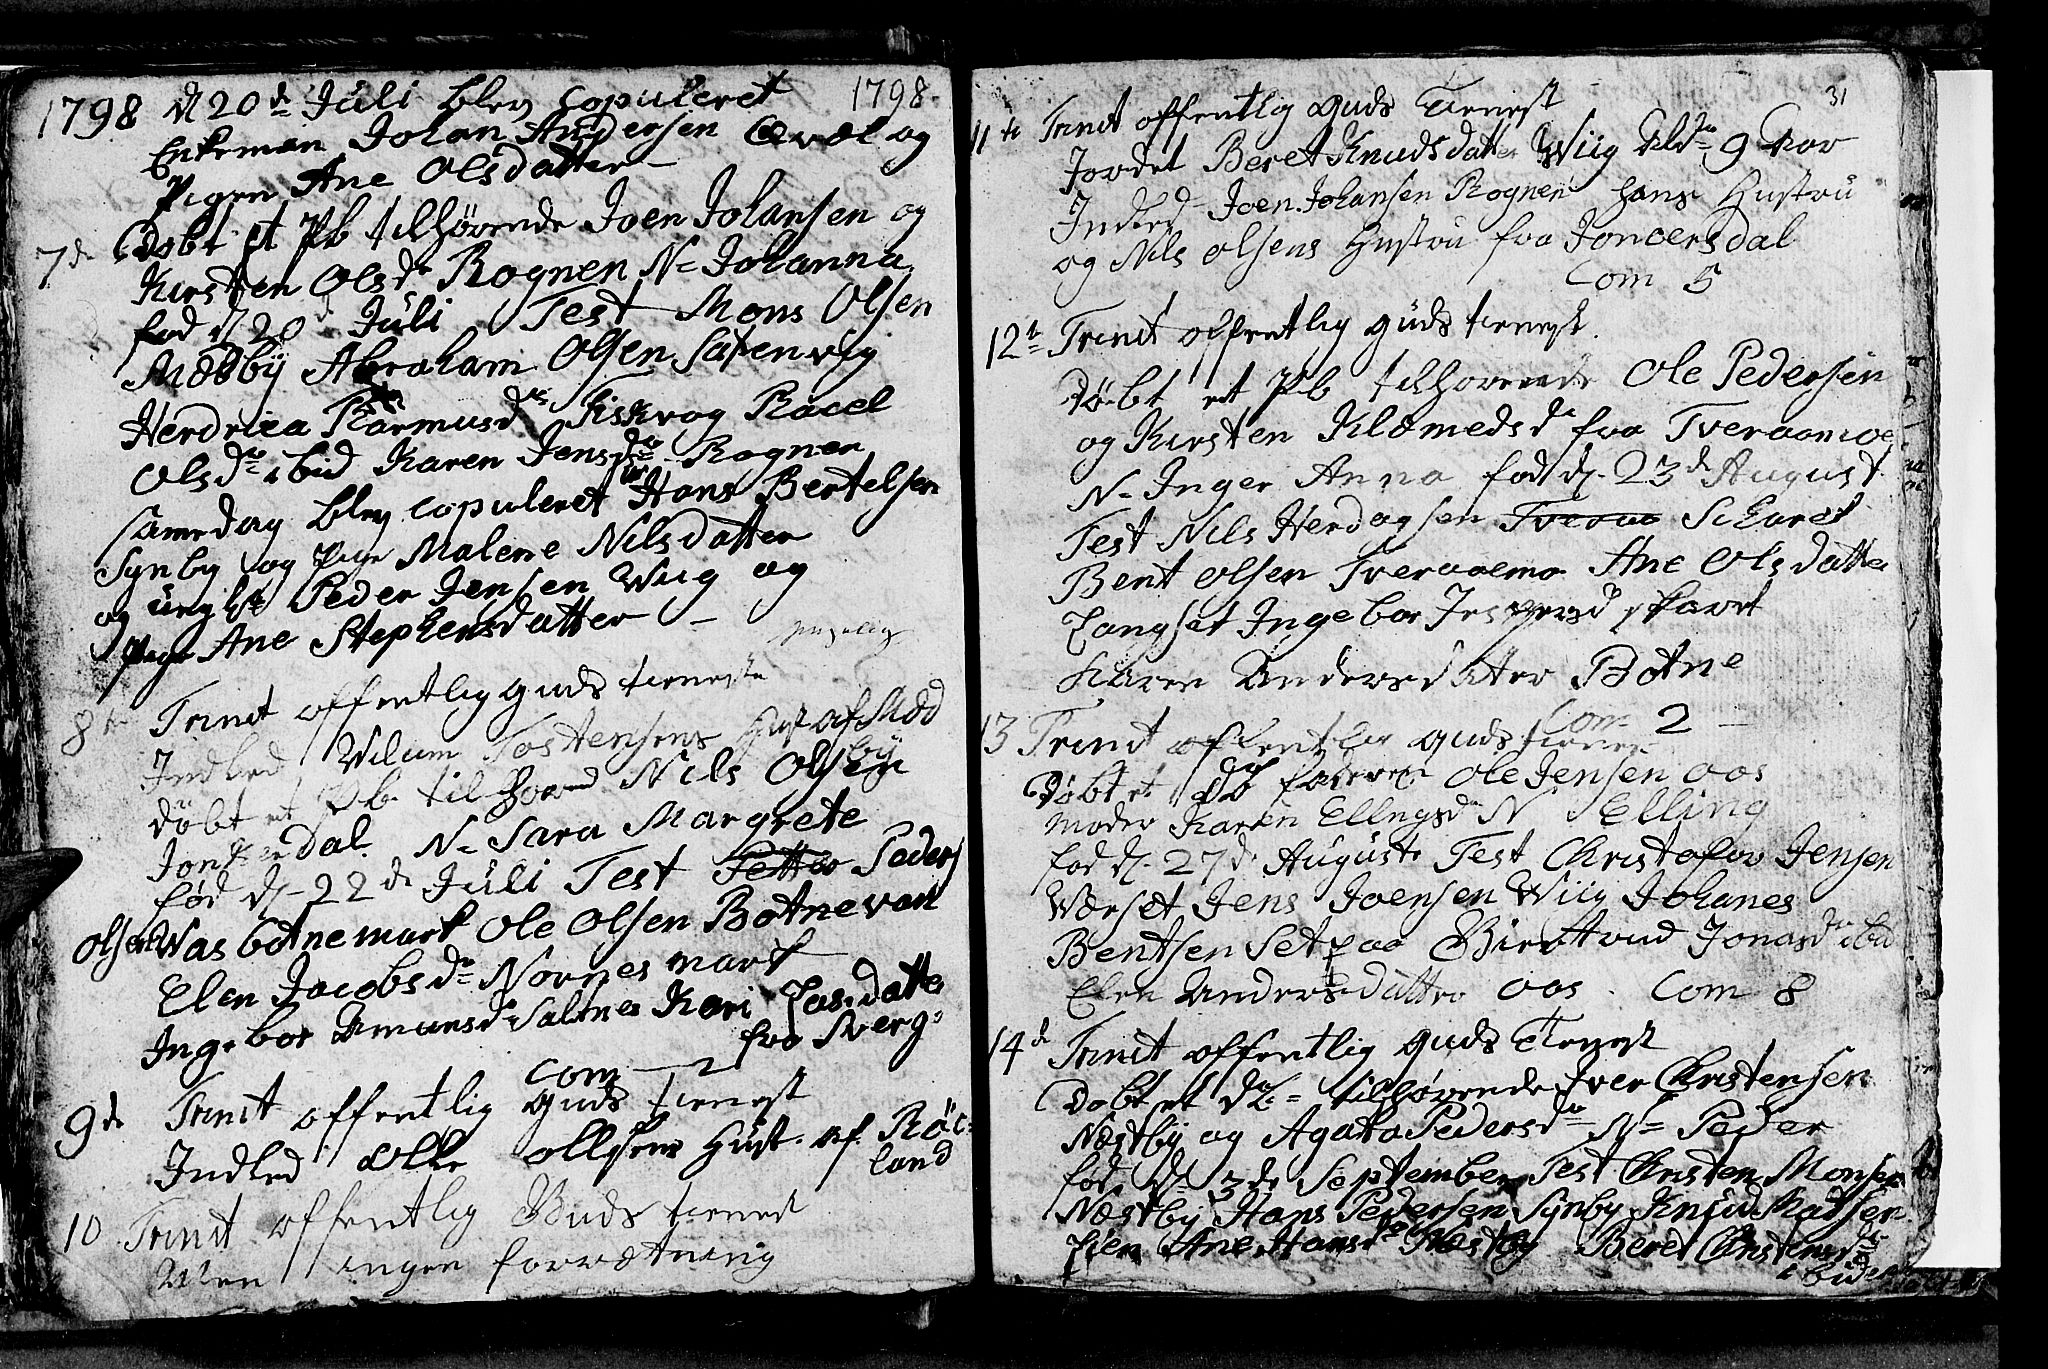 1798 d 20de Juli blev copuleret 1798.
Enkeman Johan Andersen Qvæl og
Pigen Ane Olsdatter
7de Døbt et Pb tilhørende Joen Johansen og
Kirsten Olsdr Rognen N= Johanna
fød d 20d Juli Test Mons Olsen
Mædby Abraham Olsen Saxenvig
Herdrica Rasmusdr Fiskvog Racel
Olsdr ibid Karen Jensdr Rognen
samedag blev copuleret Hans Bertelsen
Synby og Pige Malene Nilsdatter
og ungk Peder Jensen Wiig og
Pige Ane Stephensdatter
8de Trinit offentlig guds tieneste
Indled Wilum Tostensens Hust af Mæd
by
døbt et Pb. tilhørend Nils Olsen
Jonkerdal. N= Sara Margrete
fød d= 22de Juli Test Peders
Olsen Wasbotnemark Ole Olsen Botnevan
Elen Jacobsdr Nornesmark
Ingebor Amunsdr Saltnes Kari Lasedatter
fra Sverg=
Com 2
9de Trinit offentlig guds tienest
Indled Olle Ollsens Hust. af. Röc=
land
10 Trinit offentlig Guds tienest
Men ingen forrætning
31
11te Trinit offentlig guds Tienest
Jordet Beret Knudsdatter Wiig 9 Aar
Indled Joen Johansen Rognen hans Hustru
og Nils Olsens Hustru fra Joncersdal
Com 5
12te Trinit offentlig guds tienest.
døbt et Pb tilhørende Ole Pedersen
og Kirsten Klæmedsdr fra Tveraamoe
N= Inger Anna fød d. 23de August
Test Nils Herdagsen Scharet
Bent Olsen Tveraaemo Ane Olsdatter
Langset Ingebor Jespersdr skaret
Karen Andersdatter Botne
Com 2
13 Trinit offentlig guds tienest
Døbt et db faderen Ole Jensen Aas
Moder Karen Ellingsdr N Elling
fød d. 27de Auguste Test Christofer Jensen
Wærset Jens Joensen Wiig Johanes
Bentsen Setsaa Birttrud Jonasdr ibid
Elen Andersdatter Aas. Com 8
14de Trinit offentlig guds Tienest
Døbt et db= tilhørende Iver Christensen
Næstby og Agata Pedersdr N= Peder
fød d= 3de September Test Christen Monsen
Næstby Hans Pedersen Synby Knud Matsen
Lien Ane Hansdr Næstby Beret Christensdr
ibid